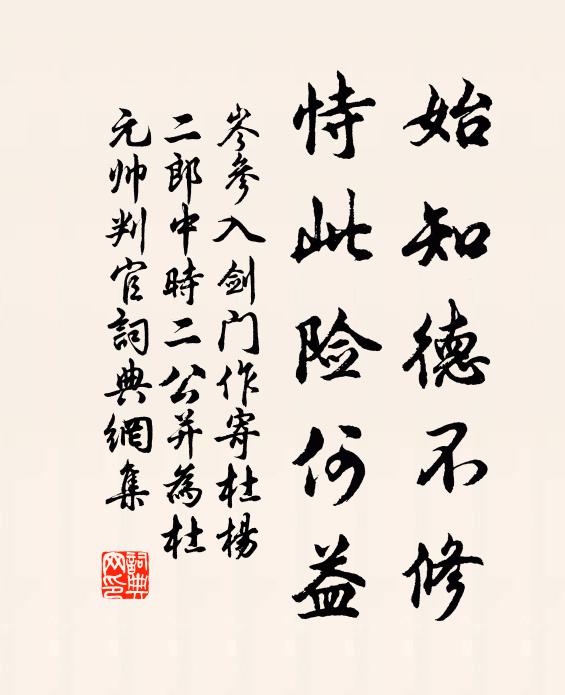 始知德不修
恃此险何益
岑参入剑门作寄杜楊
二郎中時二公并為杜
元帅判官詞典網集
詞典网印